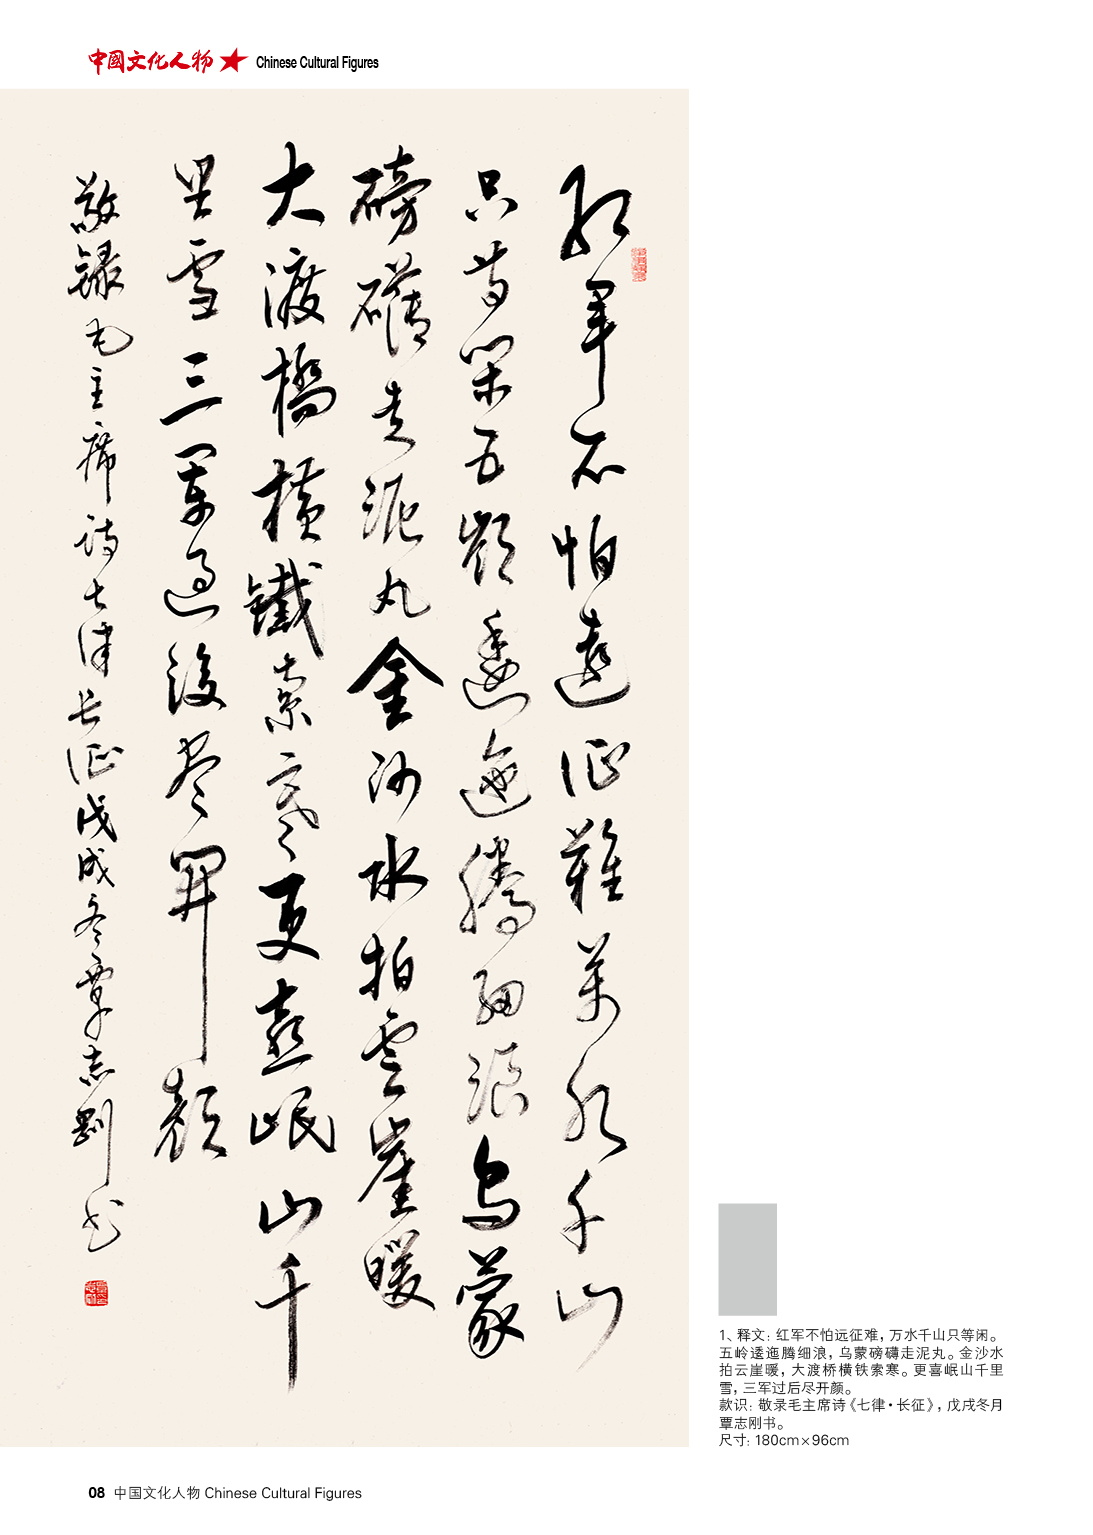 中國文化人物 Chinese Cultural Figures
紅軍不怕遠征難萬水千山
只等閑五嶺逶迤騰細浪烏蒙
磅礴走泥丸金沙水拍雲崖暖
大渡橋橫鐵索寒更喜岷山千
里雪三軍過後盡開顏
敬錄毛主席詩七律長征戊戌冬覃志剛書
1、释文：红军不怕远征难，万水千山只等闲。
五岭逶迤腾细浪，乌蒙磅礴走泥丸。金沙水
拍云崖暖，大渡桥横铁索寒。更喜岷山千里
雪，三军过后尽开颜。
款识：敬录毛主席诗《七律·长征》，戊戌冬月
覃志刚书。
尺寸：180cm×96cm
08 中国文化人物 Chinese Cultural Figures